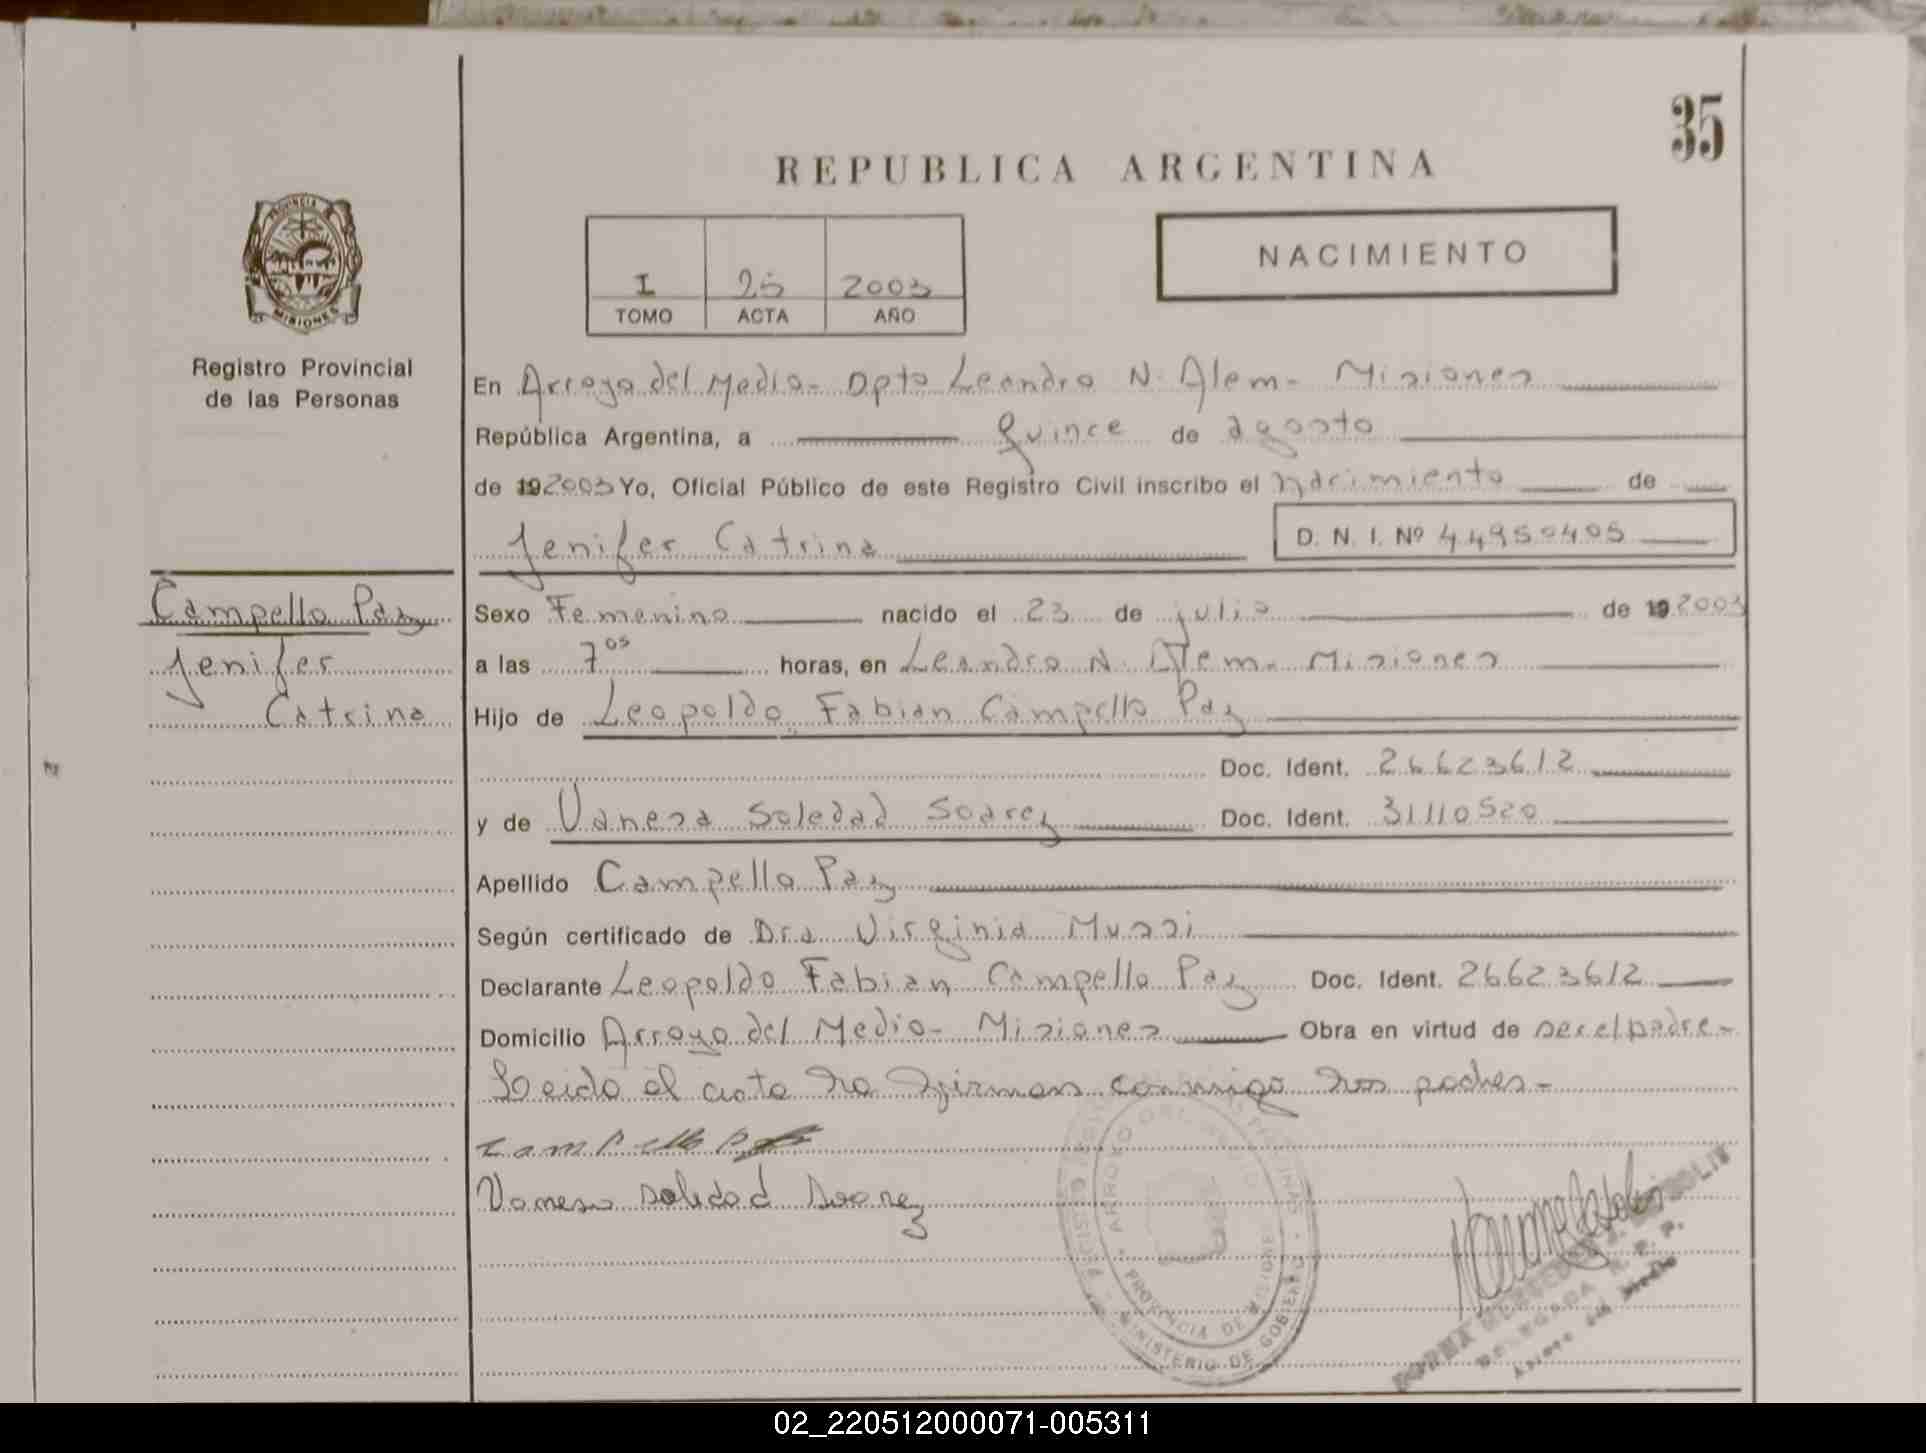 35
REPUBLICA ARGENTINA
NACIMIENTO
I 25 2003
TOMO ACTA AÑO
PROVINCIA
MISIONES
Registro Provincial
de las Personas
En Arroyo del Medio - Dpto Leandro N. Alem - Misiones
República Argentina, a quince de agosto
de 19 2003 Yo, Oficial Público de este Registro Civil inscribo el nacimiento de
Jenifer Catrina D. N. I. Nº 44950405
Campello Paz
Jenifer
Catrina
Sexo Femenino nacido el 23 de julio de 19 2003
a las 7 05 horas, en Leandro N. Alem - Misiones
Hijo de Leopoldo Fabian Campello Paz
Doc. Ident. 26623612
y de Vanesa Soledad Soarez Doc. Ident. 31110520
Apellido Campello Paz
Según certificado de Dra Virginia Mussi
Declarante Leopoldo Fabian Campello Paz Doc. Ident. 26623612
Domicilio Arroyo del Medio - Misiones Obra en virtud de ser el padre -
Leido el acta la firman conmigo los padres -
Campello P
Vanesa Soledad Soarez
ARROYO DEL MEDIO
PROVINCIA DE MISIONES
MINISTERIO DE GOBIERNO
NORMA MERCEDES
DELEGADA R. P. P.
Arroyo del Medio
02_220512000071-005311